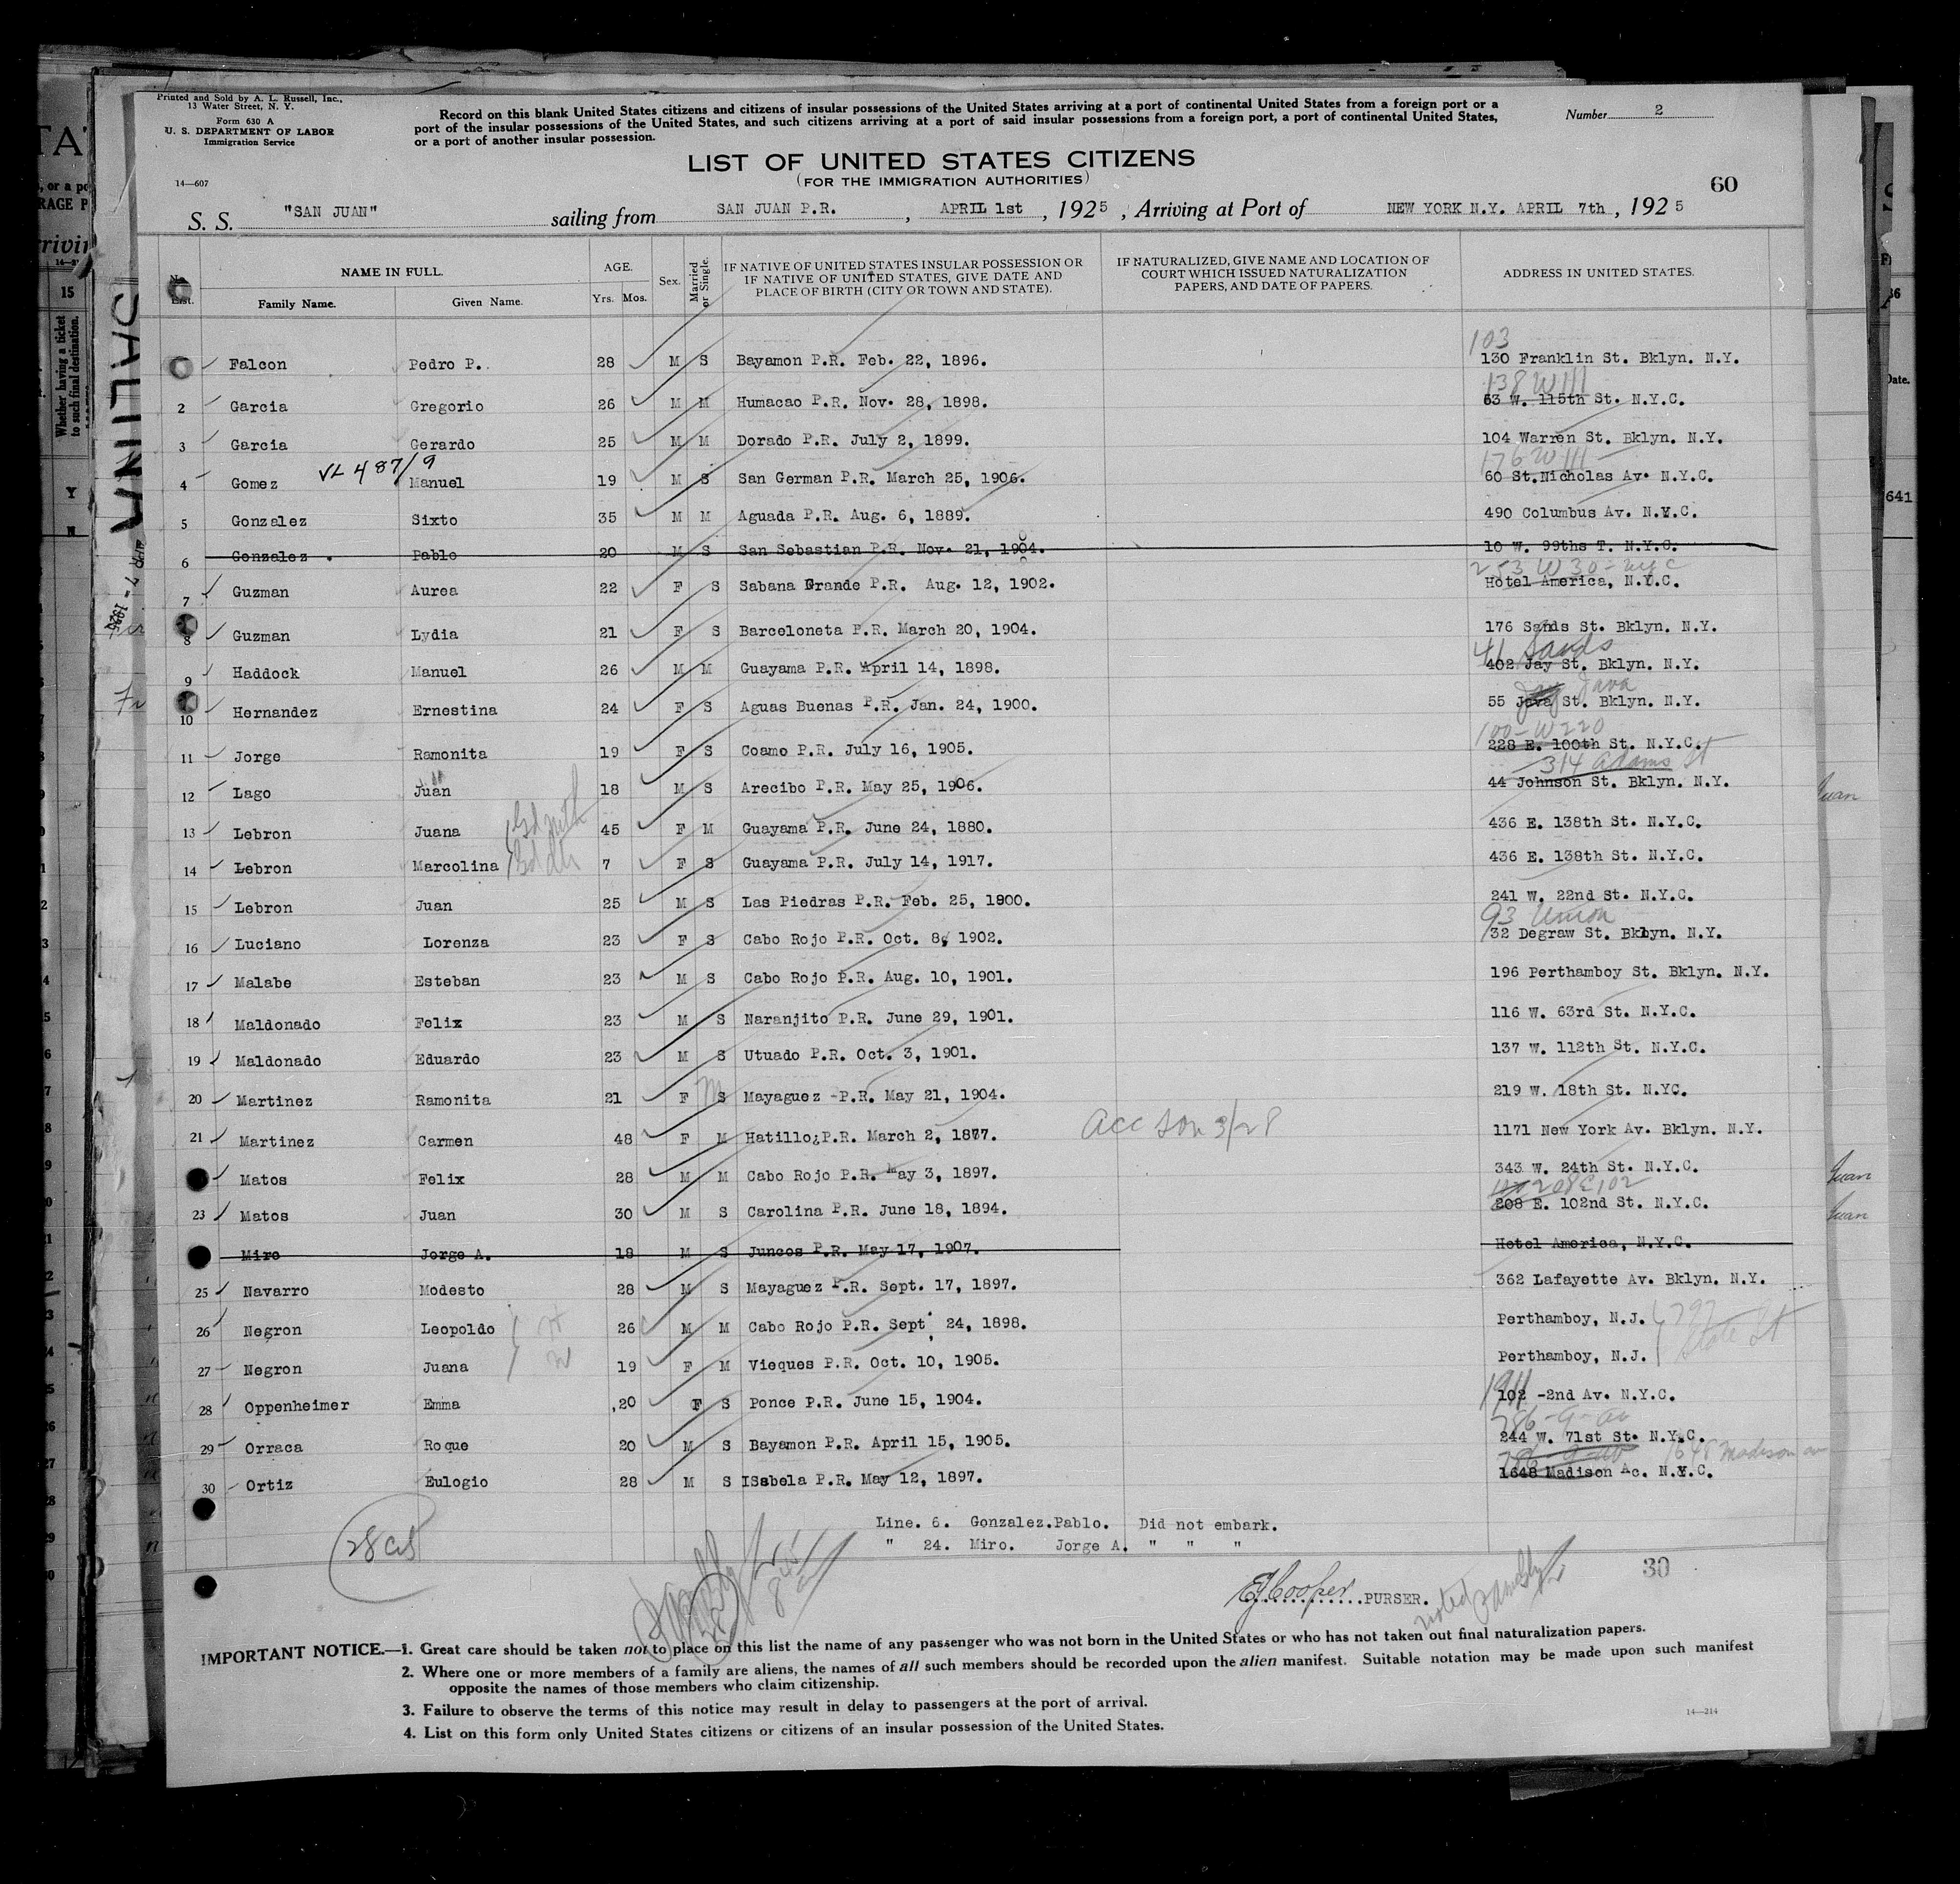 Printed and Sold by A. L. Russell, Inc.,
13 Water Street, N. Y.
Form 630 A
U. S. DEPARTMENT OF LABOR
Immigration Service
14—607
Record on this blank United States citizens and citizens of insular possessions of the United States arriving at a port of continental United States from a foreign port or a
port of the insular possessions of the United States, and such citizens arriving at a port of said insular possessions from a foreign port, a port of continental United States,
or a port of another insular possession.
Number 2
LIST OF UNITED STATES CITIZENS
(FOR THE IMMIGRATION AUTHORITIES)
60
S. S. "SAN JUAN" sailing from SAN JUAN P.R. , APRIL 1st , 1925 , Arriving at Port of NEW YORK N.Y. APRIL 7th , 1925
No. List. NAME IN FULL. Family Name. Given Name. AGE. Yrs. Mos. Sex. Married or Single. IF NATIVE OF UNITED STATES INSULAR POSSESSION OR IF NATIVE OF UNITED STATES, GIVE DATE AND PLACE OF BIRTH (CITY OR TOWN AND STATE). IF NATURALIZED, GIVE NAME AND LOCATION OF COURT WHICH ISSUED NATURALIZATION PAPERS, AND DATE OF PAPERS. ADDRESS IN UNITED STATES.
103
Falcon Pedro P. 28 M S Bayamon P.R. Feb. 22, 1896. 130 Franklin St. Bklyn. N.Y.
138 W 111
2 Garcia Gregorio 26 M M Humacao P.R. Nov. 28, 1898. 63 W. 115th St. N.Y.C.
3 Garcia Gerardo 25 M M Dorado P.R. July 2, 1899. 104 Warren St. Bklyn. N.Y.
VL 487/9 176 W 111
4 Gomez Manuel 19 M S San German P.R. March 25, 1906. 60 St.Nicholas Av. N.Y.C.
5 Gonzalez Sixto 35 M M Aguada P.R. Aug. 6, 1889. 490 Columbus Av. N.Y.C.
6 Gonzalez . Pablo 20 M S San Sebastian P.R. Nov. 21, 1904. 10 W. 99ths T. N.Y.C.
253 W 30 - NYC
7 Guzman Aurea 22 F S Sabana Grande P.R. Aug. 12, 1902. Hotel America, N.Y.C.
8 Guzman Lydia 21 F S Barceloneta P.R. March 20, 1904. 176 Sands St. Bklyn. N.Y.
41 Sands
9 Haddock Manuel 26 M M Guayama P.R. April 14, 1898. 402 Jay St. Bklyn. N.Y.
Jay Java
10 Hernandez Ernestina 24 F S Aguas Buenas P.R. Jan. 24, 1900. 55 Java St. Bklyn. N.Y.
100 - W 220
11 Jorge Ramonita 19 F S Coamo P.R. July 16, 1905. 228 E. 100th St. N.Y.C.
314 Adams St
12 Lago Juan 18 M S Arecibo P.R. May 25, 1906. 44 Johnson St. Bklyn. N.Y.
13 Lebron Juana 45 F M Guayama P.R. June 24, 1880. 436 E. 138th St. N.Y.C.
14 Lebron Marcolina 7 F S Guayama P.R. July 14, 1917. 436 E. 138th St. N.Y.C.
15 Lebron Juan 25 M S Las Piedras P.R. Feb. 25, 1900. 241 W. 22nd St. N.Y.C.
93 Union
16 Luciano Lorenza 23 F S Cabo Rojo P.R. Oct. 8, 1902. 32 Degraw St. Bklyn. N.Y.
17 Malabe Esteban 23 M S Cabo Rojo P.R. Aug. 10, 1901. 196 Perthamboy St. Bklyn. N.Y.
18 Maldonado Felix 23 M S Naranjito P.R. June 29, 1901. 116 W. 63rd St. N.Y.C.
19 Maldonado Eduardo 23 M S Utuado P.R. Oct. 3, 1901. 137 W. 112th St. N.Y.C.
20 Martinez Ramonita 21 F M S Mayaguez -P.R. May 21, 1904. 219 W. 18th St. N.YC.
21 Martinez Carmen 48 F M Hatillo, P.R. March 2, 1877. Acc son 3/28 1171 New York Av. Bklyn. N.Y.
Matos Felix 28 M M Cabo Rojo P.R. May 3, 1897. 343 W. 24th St. N.Y.C.
208 E 102
23 Matos Juan 30 M S Carolina P.R. June 18, 1894. 208 E. 102nd St. N.Y.C.
Miro Jorge A. 18 M S Juncos P.R. May 17, 1907. Hotel America, N.Y.C.
25 Navarro Modesto 28 M S Mayaguez P.R. Sept. 17, 1897. 362 Lafayette Av. Bklyn. N.Y.
26 Negron Leopoldo H 26 M M Cabo Rojo P.R. Sept. 24, 1898. Perthamboy, N.J. 797
27 Negron Juana W 19 F M Vieques P.R. Oct. 10, 1905. Perthamboy, N.J. State St
28 Oppenheimer Emma 20 F S Ponce P.R. June 15, 1904. 102 -2nd Av. N.Y.C.
786 - 9 - av
29 Orraca Roque 20 M S Bayamon P.R. April 15, 1905. 244 W. 71st St. N.Y.C.
1648 Madison av
30 Ortiz Eulogio 28 M S ISabela P.R. May 12, 1897. 1648 Madison Ac. N.Y.C.
Line. 6. Gonzalez.Pablo. Did not embark.
" 24. Miro. Jorge A. " " "
28
30
E J Cooper PURSER.
IMPORTANT NOTICE.—1. Great care should be taken not to place on this list the name of any passenger who was not born in the United States or who has not taken out final naturalization papers.
2. Where one or more members of a family are aliens, the names of all such members should be recorded upon the alien manifest. Suitable notation may be made upon such manifest
opposite the names of those members who claim citizenship.
3. Failure to observe the terms of this notice may result in delay to passengers at the port of arrival.
4. List on this form only United States citizens or citizens of an insular possession of the United States.
14—214
SALINA
APR 7 - 1925